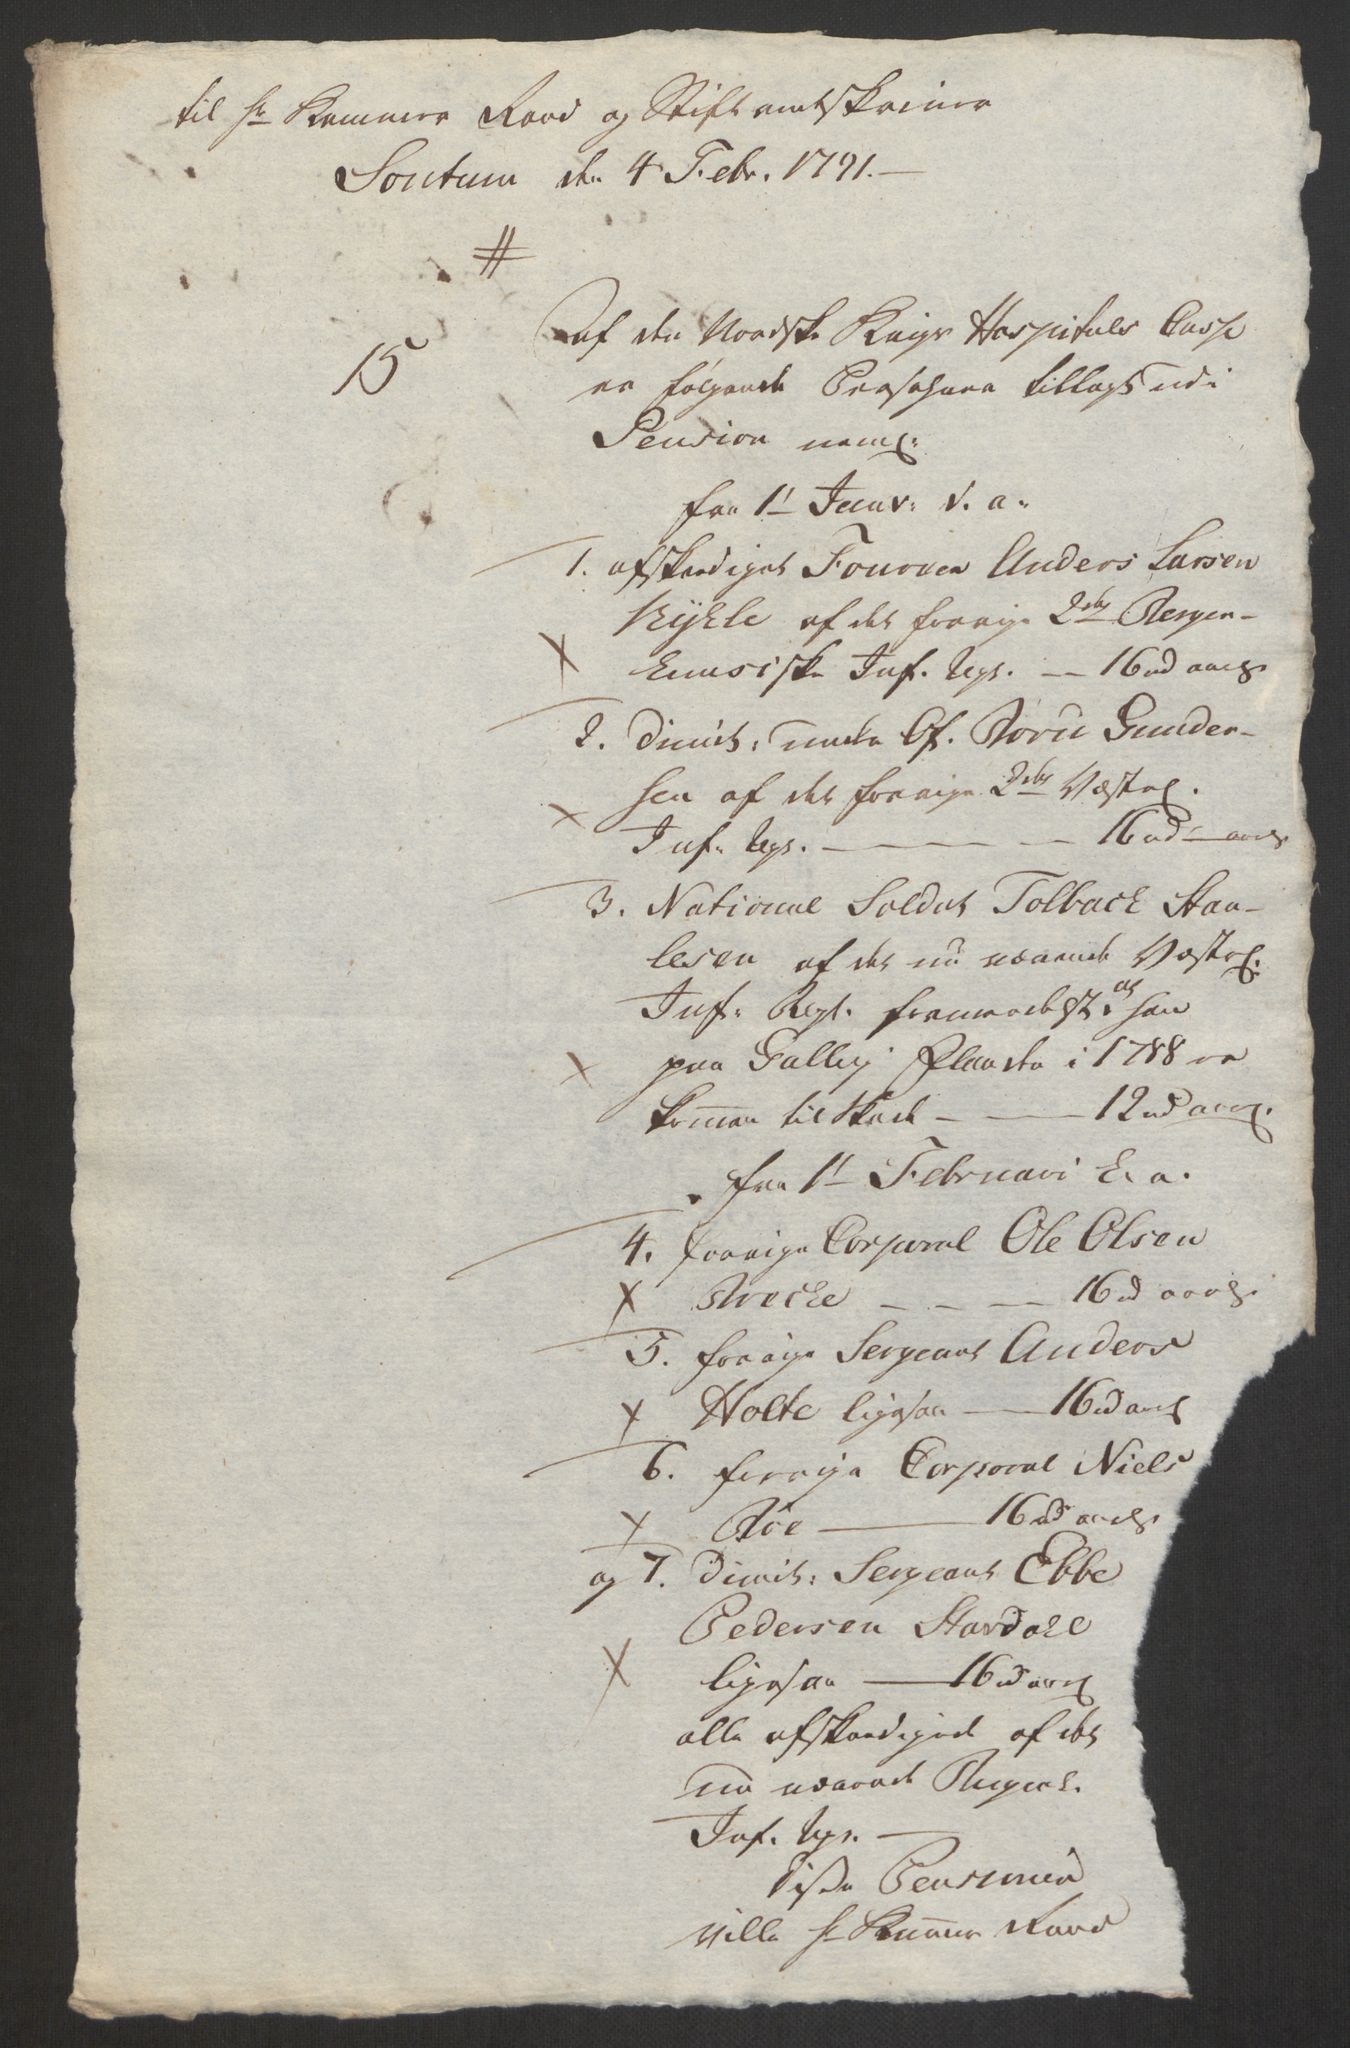 til Hr Kammer Raad og Stiftamtskriver
Sontum den 4 Febr. 1791.—
#
15
af den Norske Krigs Hospitals Casse
er følgende Persohner tillagt udi
Pension neml:
fra 1t Janv: d. a:
1. afskeediget Fourier Anders Larsen
af det forrige 2det Bergen-
husiske Inf. Regt. — 16 rd aarl.
2. Dimit: under Of. Gunder-
sen af det forrige 2det Vesterl.
Inf. Regt. — 16 rd — aarl.
3. National Soldat Tolback Staa-
lesen af det nu værende Vesterl.
Inf: Regt. formedelst at han
paa Galley Flaaden i 1788 er
kommen til skade — 12 rd aarl.
fra 1t Februari h. a.
4. forrige Corporal Ole Olsen
Brecke — — — 16 rd aarl.
5. forrige Sergeant Anders
Holte ligesaa — 16 rd aarl
6. forrige Corporal Niels
Röe — 16 rd aarl.
og 7. Dimit: Sergeant Ebbe
Pedersen
ligesaa — 16 rd aarl
alle afskeediget af det
nu værende
Inf. Regt. —
Disse Pensioner
ville Hr Kammer Raad